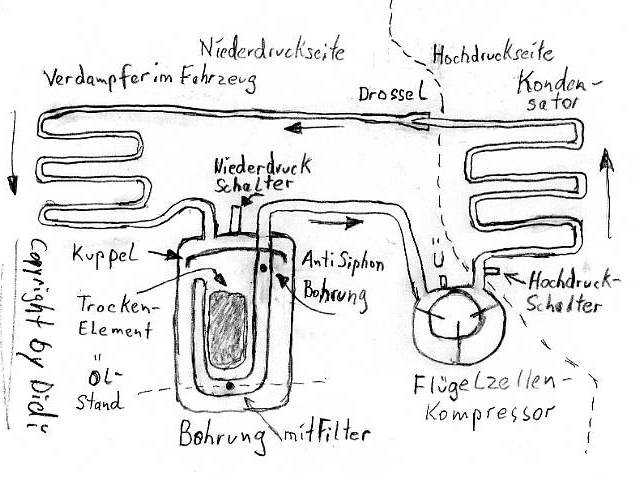 Niederdruckseite
Hochdruckseite
Verdampfer im Fahrzeug
Drossel
Konden-
sator
Niederdruck
Schalter
Kuppel
Anti Siphon
Bohrung
Ü
Hochdruck-
Schalter
Trocken-
Element
Öl-
Stand
Flügelzellen-
Kompressor
Bohrung mit Filter
Copyright by Didi